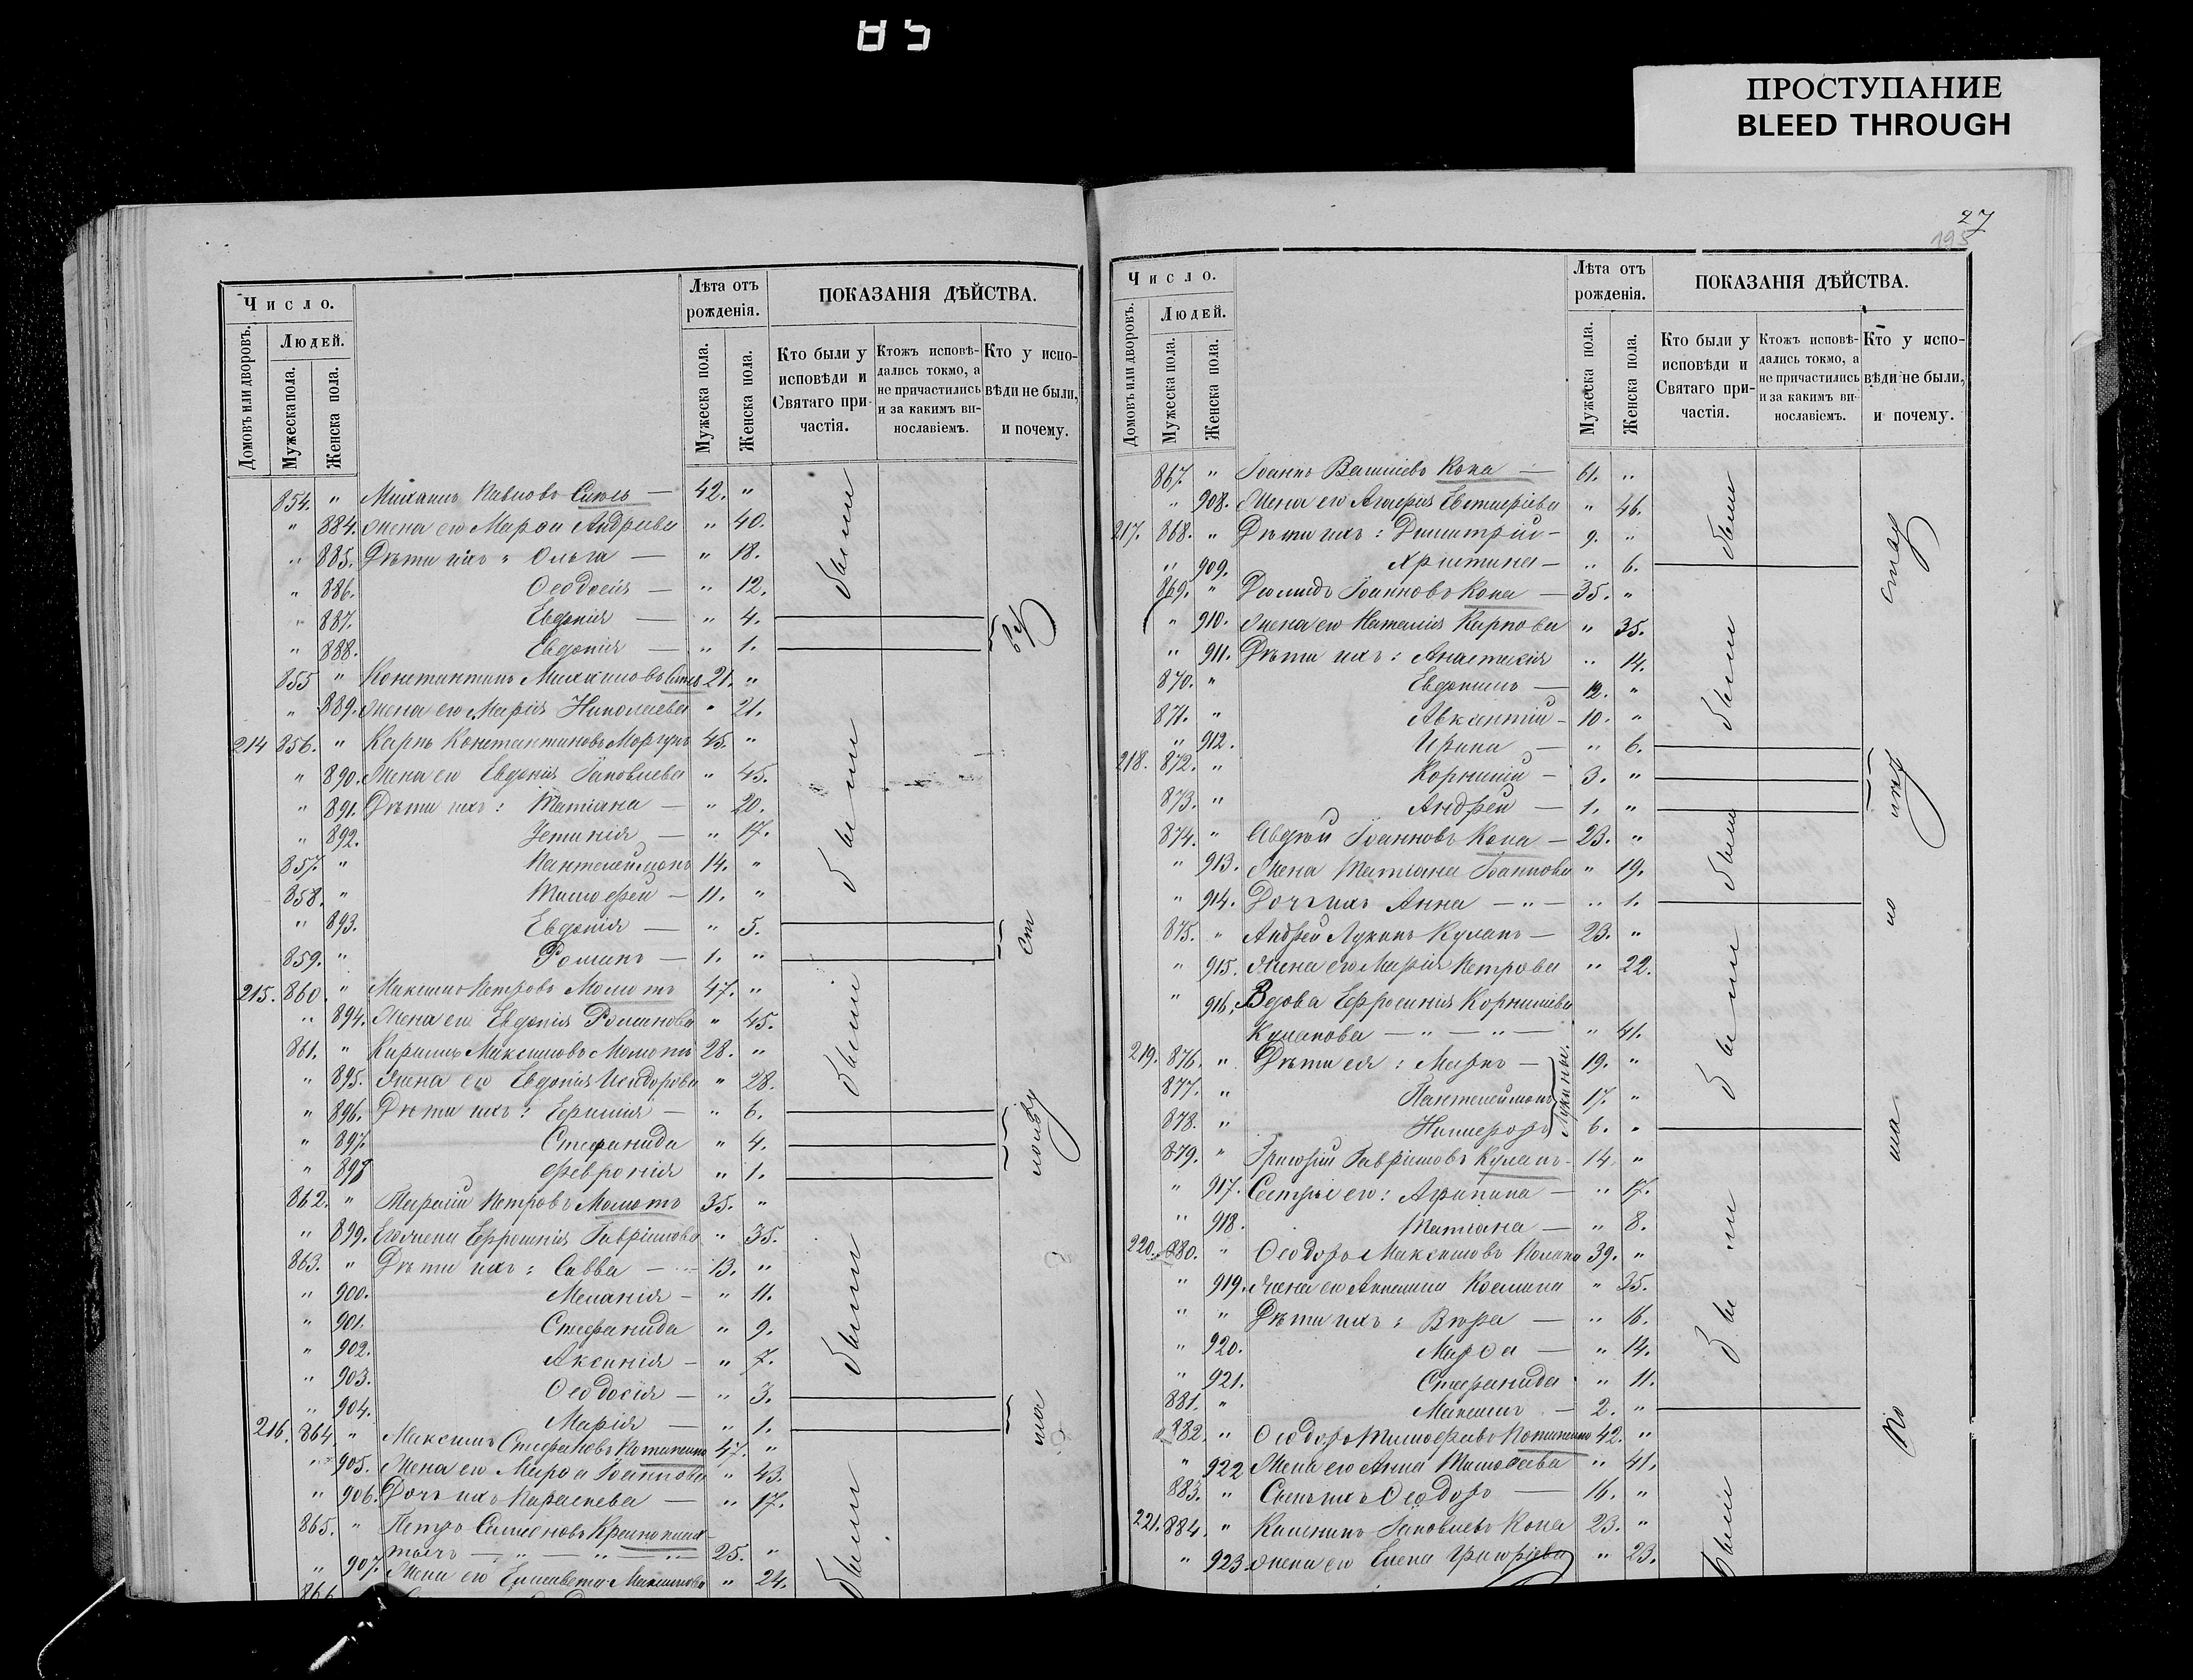 85
ПРОСТУПАНИЕ
BLEED THROUGH
Число.
Лѣта отъ рожденія.
ПОКАЗАНІЯ ДѢЙСТВА.
Домовъ или дворовъ.
Людей.
Мужеска пола.
Женска пола.
Мужеска пола.
Женска пола.
Кто были у исповѣди и Святаго причастія.
Ктожъ исповѣдались токмо, а не причастились и за какимъ винославіемъ.
Кто у исповѣди не были, и почему.
854. " Михаилъ Павловъ — 42. "
" 884. Жена его Марѳа Андреева " 40.
" 885. Дѣти ихъ: Ольга — " 18.
" 886. Ѳеодосія — " 12.
" 887. Евдокія — " 4.
" 888. Евдокія — " 1.
855 " Константинъ Михаиловъ 21. "
" 889. Жена его Марія Николаева " 21.
214 856. " Карпъ Константиновъ Моргунъ 45. "
" 890. Жена его Евдокія Іаковлева " 45.
" 891. Дѣти ихъ: Татіана — " 20.
" 892. Устинія — " 17.
857. " Пантелеймонъ 14. "
858. " Тимоѳей — 11. "
" 893. Евдокія — " 5.
859. " Романъ — 1. "
215. 860. " Максимъ Петровъ Момотъ 47. "
" 894. Жена его Евдокія Романова " 45.
861. " Кириллъ Максимовъ Момотъ 28. "
" 895. Жена его Евдокія Исидорова " 28.
" 896. Дѣти ихъ: Евфимія — " 6.
" 897. Стефанида " 4.
" 898 Февронія " 1.
862. " Тарасій Петровъ Момотъ 35. "
" 899. Его жена Ефросинія Гавріилова " 35.
863. " Дѣти ихъ: Савва — 13. "
" 900. Меланія — " 11.
" 901. Стефанида " 9.
" 902. Аксинія — " 7.
" 903. Ѳеодосія — " 3.
" 904. Марія — " 1.
216. 864. " Максимъ Стефановъ 47. "
" 905. Жена его Марѳа Іоаннова " 43.
" 906. Дочь ихъ Параскева — " 17.
865. " Петръ Симеоновъ
25. "
" 907. Жена его Елисавета Максимова " 24.
866
были
были
были
были
были
27
195
Число.
Лѣта отъ рожденія.
ПОКАЗАНІЯ ДѢЙСТВА.
Домовъ или дворовъ.
Людей.
Мужеска пола.
Женска пола.
Мужеска пола.
Женска пола.
Кто были у исповѣди и Святаго причастія.
Ктожъ исповѣдались токмо, а не причастились и за какимъ винославіемъ.
Кто у исповѣди не были, и почему.
867. " Іоаннъ Василіевъ Копа — 61. "
" 908. Жена его Агафія Евстафіева " 46.
217. 868. " Дѣти ихъ: Димитрій — 9. "
" 909. Христина — " 6.
869. " Діомидъ Іоанновъ Копа — 35. "
" 910. Жена его Наталія Карпова " 35.
" 911. Дѣти ихъ: Анастасія " 14.
870. " Евдокимъ — 12. "
871. " Авксентій — 10. "
" 912. Ирина — " 6.
218. 872. " Корнилій — 3. "
873. " Андрей — 1. "
874. " Авдѣй Іоанновъ Копа — 23. "
" 913. Жена Татіана Іоаннова " 19.
" 914. Дочь ихъ Анна — " — " 1.
875. " Андрей Лукинъ Кулакъ — 23. "
" 915. Жена его Марія Петрова " 22.
" 916. Вдова Ефросинія Корниліева
Кулакова — " — " — " 41.
219. 876. " Дѣти ея: Маркъ — 19. "
877. " Пантелеймонъ 17. "
878. " Никифоръ 6. "
Лукины.
879. " Григорій Гавріиловъ Кулакъ — 14. "
" 917. Сестры его: Агрипина — " 17.
" 918. Татіана — " 8.
220. 880. " Ѳеодоръ Максимовъ 39. "
" 919. Жена его Акилина Космина " 35.
" " Дѣти ихъ: Вѣра — " 16.
" 920. Марѳа — " 14.
" 921. Стефанида " 11.
881. " Максимъ — 2. "
882. " Ѳеодоръ Тимоѳеевъ 42. "
" 922 Жена его Анна Тимоѳеева " 41.
883. " Сынъ ихъ Ѳеодоръ — 16. "
221. 884. " Калиникъ Іаковлевъ Копа 23. "
" 923. Жена его Елена Григоріева " 23.
были
были
были
были
были
были